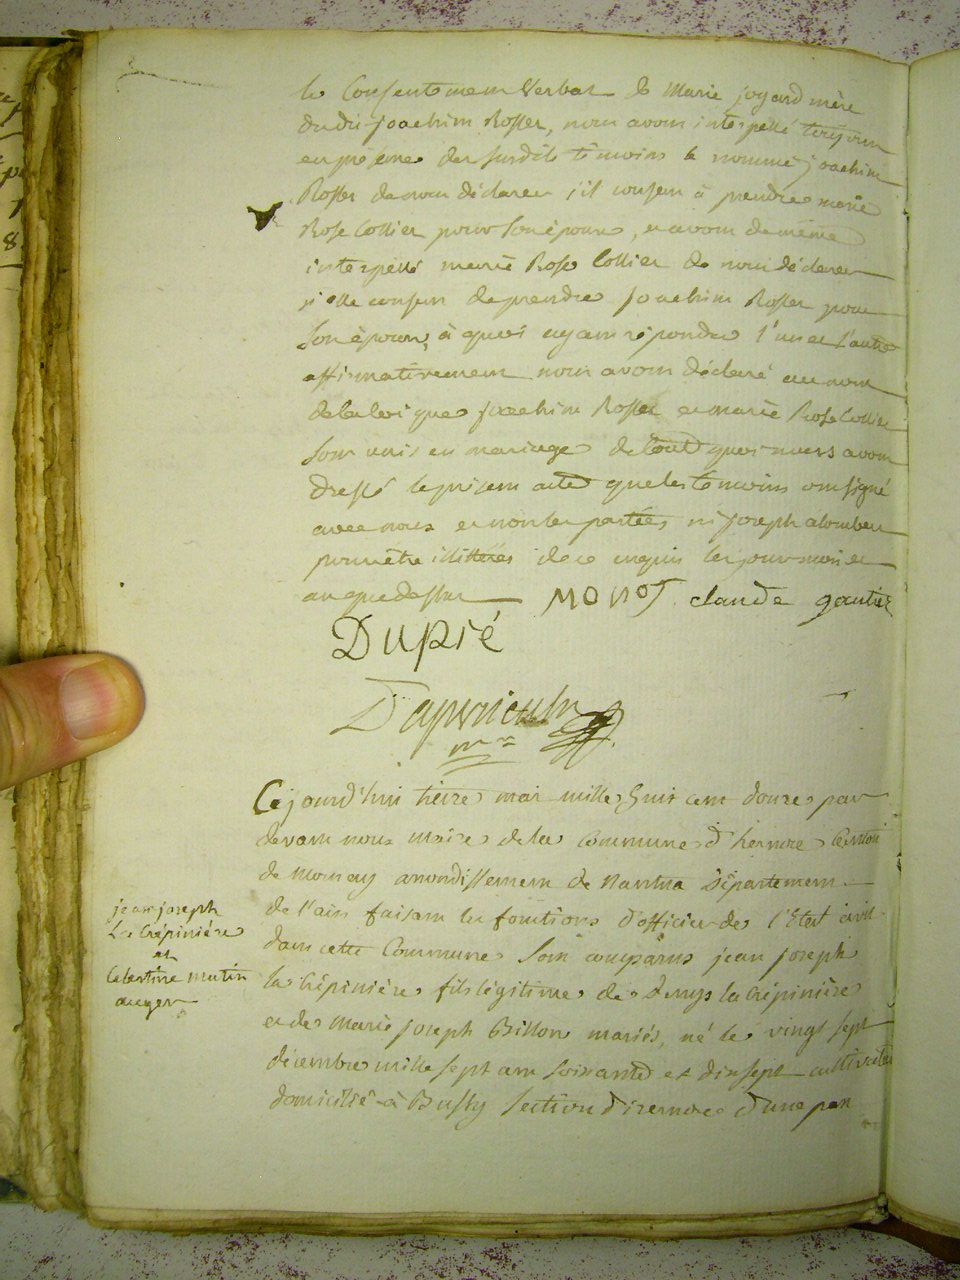 le Consentemem Verbal de Marie joyard mère
dudit joachim Rosset, nous avons interpellé toujours
en présence des susdits témoins le nommé joachim
Rosset de nous déclarer s'il consen à prendre marie
Rose Collier pour son épouse, et avons de même
interpellé marie Rose Collier de nous déclarer
si elle consen de prendre joachim Rosset pour
son époux, à quoi ayam répondu l'un et l'autre
affirmativement nous avons déclaré au nom
de la loi que joachim Rosset et marie Rose Collier
som unis en mariage de tout quoi nous avons
dressé le présem acte que les témoins om signé
avec nous et non les parties ni joseph alombert
pour être illittérés de ce enquis les jour mois et
an que dessus MONOT claude gautier
Dupré
mre
Cejourd'hui treize mai mille huit cent douze par
devam nous maire de la Commune d'hernore Canton
de Mornay arrondissement de Nantua Département
de l'ain faisam les fonctions d'officier de l'Etat civil
dans cette Commune Son comparus jean joseph
la Crépinière fils légitime de denys la Crépinière
et de Marie joseph Billon mariés, né le vingt sept
décembre mille sept cent soixante et dix sept cultivateur
domicilié à Bussy section d'izernore d'une part
jean joseph
La Crépinière
et
Celestine mutin
auger